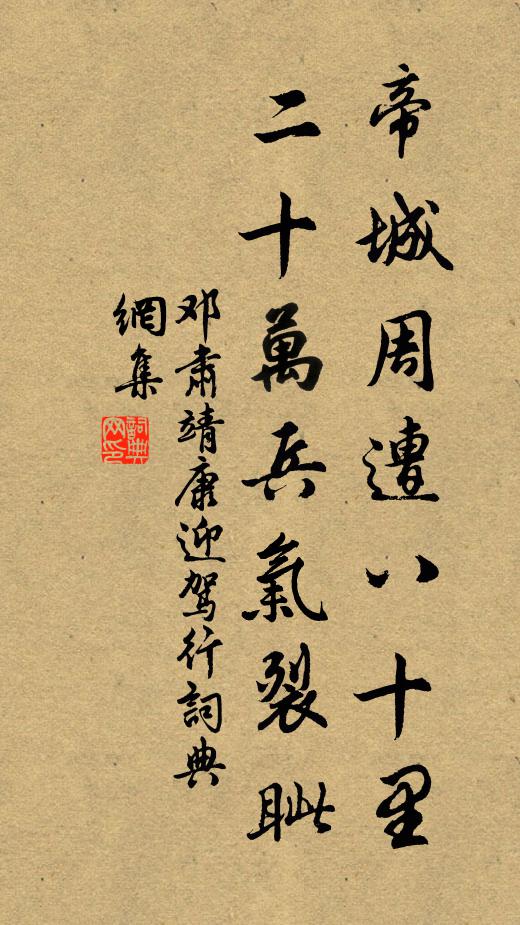 帝城周遭八十里
二十萬兵氣裂眦
邓肅靖康迎駕行詞典
網集
詞典
网印